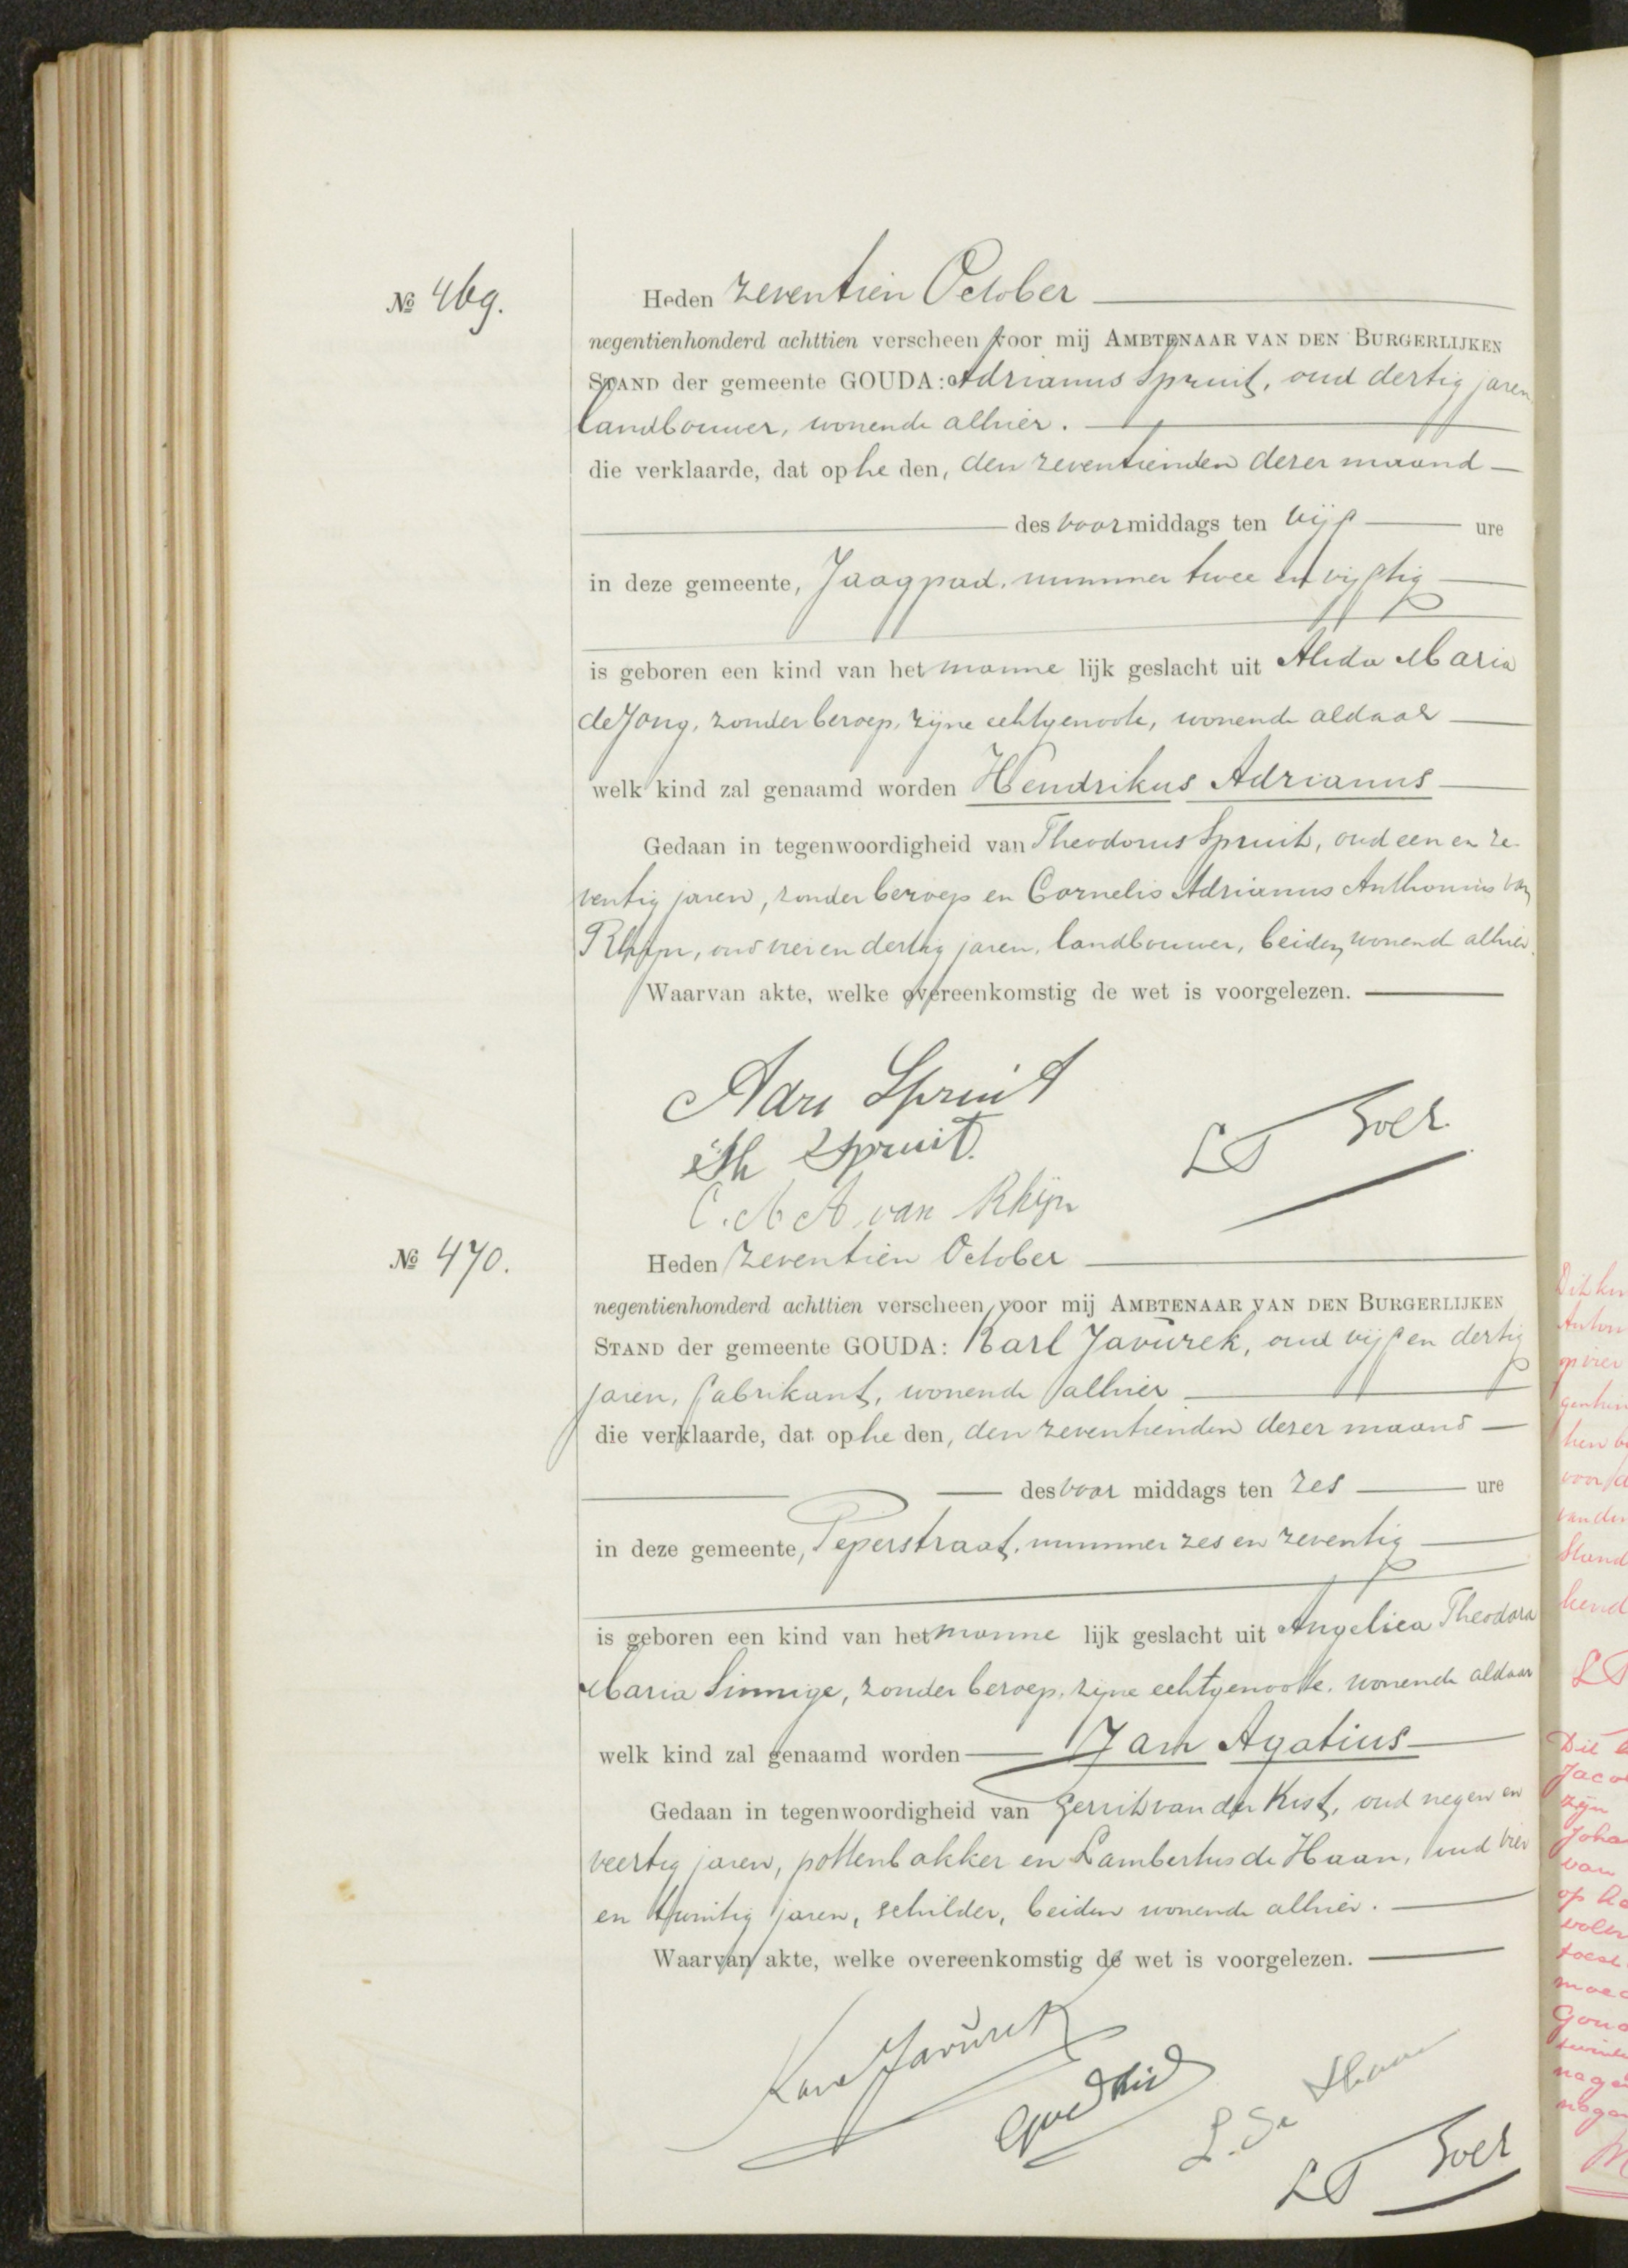 № 469.
Heden zeventien October
negentienhonderd achttien verscheen voor mij AMBTENAAR VAN DEN BURGERLIJKEN
STAND der gemeente GOUDA: Adrianus Spruit, oud dertig jaren
landbouwer, wonende alhier.
die verklaarde, dat op he den, den zeventienden dezer maand
des voor middags ten vijf ure
in deze gemeente, Jaagpad, nummer twee en vijftig
is geboren een kind van het manne lijk geslacht uit Alida Maria
de Jong, zonder beroep, zijne echtgenoote, wonende aldaar
welk kind zal genaamd worden Hendrikus Adrianus
Gedaan in tegenwoordigheid van Theodorus Spruit, oud een en ze
ventig jaren, zonder beroep en Cornelis Adrianus Anthonius van
Rhijn, oud vier en dertig jaren, landbouwer, beiden wonende alhier.
Waarvan akte, welke overeenkomstig de wet is voorgelezen.
Adrs Spruit
Th Spruit.
C. A A. van Rhijn
№ 470.
Heden zeventien October
negentienhonderd achttien verscheen voor mij AMBTENAAR VAN DEN BURGERLIJKEN
STAND der gemeente GOUDA: Karl Javůrek, oud vijf en dertig
jaren, fabrikant, wonende alhier
die verklaarde, dat op he den, den zeventienden dezer maand
des voor middags ten zes ure
in deze gemeente, Peperstraat, nummer zes en zeventig
is geboren een kind van het manne lijk geslacht uit Angelica Theodora
Maria Sinnige, zonder beroep, zijne echtgenoote, wonende aldaar
welk kind zal genaamd worden Jan Agatius
Gedaan in tegenwoordigheid van Gerrit van der Kist, oud negen en
veertig jaren, pottenbakker en Lambertus de Haan, oud vier
en twintig jaren, schilder, beiden wonende alhier.
Waarvan akte, welke overeenkomstig de wet is voorgelezen.
Karel Javůrek
GvdKist
L. de Haan